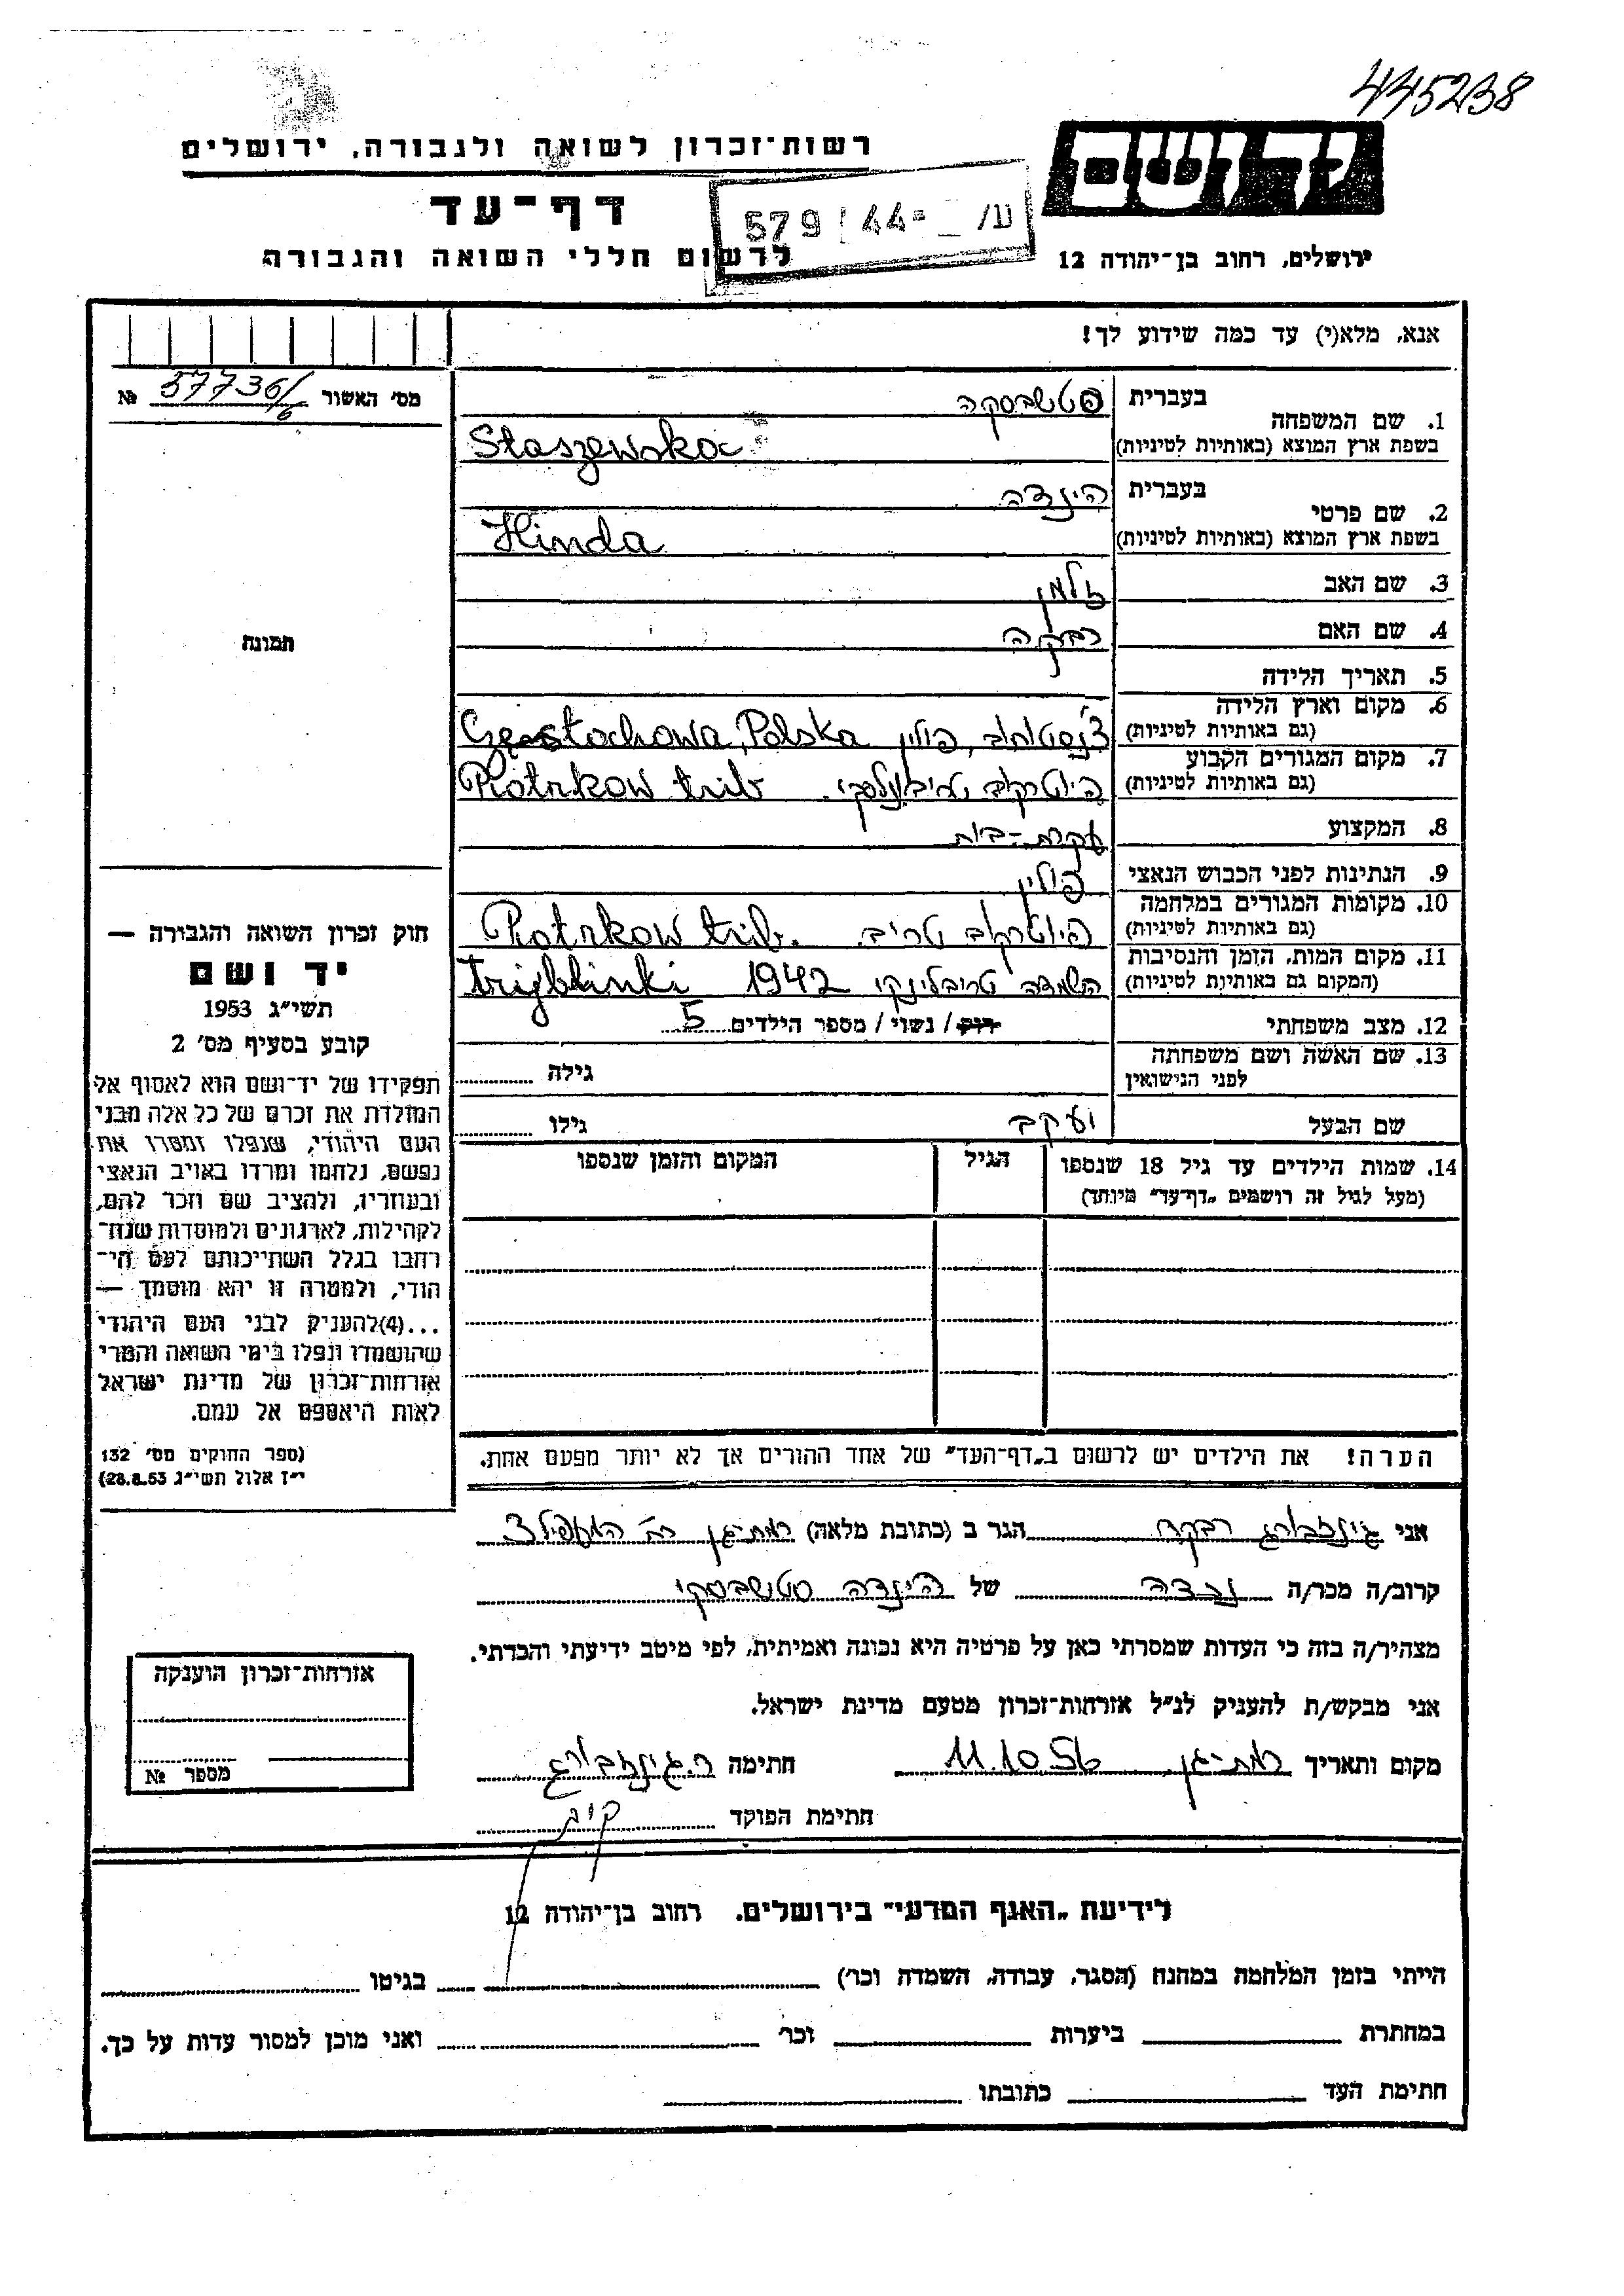 445238
רשות־זכרון לשואה ולגבורה, ירושלים
יד ושם
דף־עד
579 44- ע/
לרשום חללי השואה והגבורה
ירושלים, רחוב בן־יהודה 12
אנא, מלא(י) עד כמה שידוע לך!
מס' האשור 57736/6 №
תמונה
בעברית סטשבסקה
1. שם המשפחה
בשפת ארץ המוצא (באותיות לטיניות) Staszewska
בעברית הינדה
2. שם פרטי
בשפת ארץ המוצא (באותיות לטיניות) Hinda
3. שם האב זלמן
4. שם האם רבקה
5. תאריך הלידה
6. מקום וארץ הלידה
(גם באותיות לטיניות) צ'נסטוחוב, פולין Częstochowa, Polska
7. מקום המגורים הקבוע
(גם באותיות לטיניות) פיוטרקוב Piotrkow trib
8. המקצוע עקרת-בית
9. הנתינות לפני הכבוש הנאצי פולין
10. מקומות המגורים במלחמה
(גם באותיות לטיניות) פיוטרקוב טריב. Piotrkow trib.
11. מקום המות, הזמן והנסיבות
(המקום גם באותיות לטיניות) השמדה טריבלינקי 1942 Trijblinki
12. מצב משפחתי רוק / נשוי / מספר הילדים 5
13. שם האשה ושם משפחתה
לפני הנישואין
גילה
שם הבעל יעקב גילו
14. שמות הילדים עד גיל 18 שנספו
(מעל לגיל זה רושמים „דף־עד” מיוחד)
הגיל
המקום והזמן שנספו
הערה! את הילדים יש לרשום ב„דף־העד” של אחד ההורים אך לא יותר מפעם אחת.
חוק זכרון השואה והגבורה —
יד ושם
תשי״ג 1953
קובע בסעיף מס' 2
תפקידו של יד־ושם הוא לאסוף אל
המולדת את זכרם של כל אלה מבני
העם היהודי, שנפלו ומסרו את
נפשם, נלחמו ומרדו באויב הנאצי
ובעוזריו, ולהציב שם וזכר להם,
לקהילות, לארגונים ולמוסדות שנח־
רבו בגלל השתייכותם לעם הי־
הודי, ולמטרה זו יהא מוסמך —
...(4)להעניק לבני העם היהודי
שהושמדו ונפלו בימי השואה והמרי
אזרחות־זכרון של מדינת ישראל
לאות היאספם אל עמם.
(ספר החוקים מס' 132
י״ז אלול תשי״ג 28.8.53)
אני גינזבורג רבקה הגר ב (כתובת מלאה) רמת-גן
קרוב/ה מכר/ה נכדה של הינדה סטשבסקי
מצהיר/ה בזה כי העדות שמסרתי כאן על פרטיה היא נכונה ואמיתית, לפי מיטב ידיעתי והכרתי.
אני מבקש/ת להעניק לנ״ל אזרחות־זכרון מטעם מדינת ישראל.
מקום ותאריך רמת-גן 11.10.56 חתימה ר. גינזבורג
חתימת הפוקד
אזרחות־זכרון הוענקה
מספר №
לידיעת „האגף המדעי” בירושלים, רחוב בן־יהודה 12
הייתי בזמן המלחמה במחנה (הסגר, עבודה, השמדה וכר') בגיטו
במחתרת ביערות וכר' ואני מוכן למסור עדות על כך.
חתימת העד כתובתו